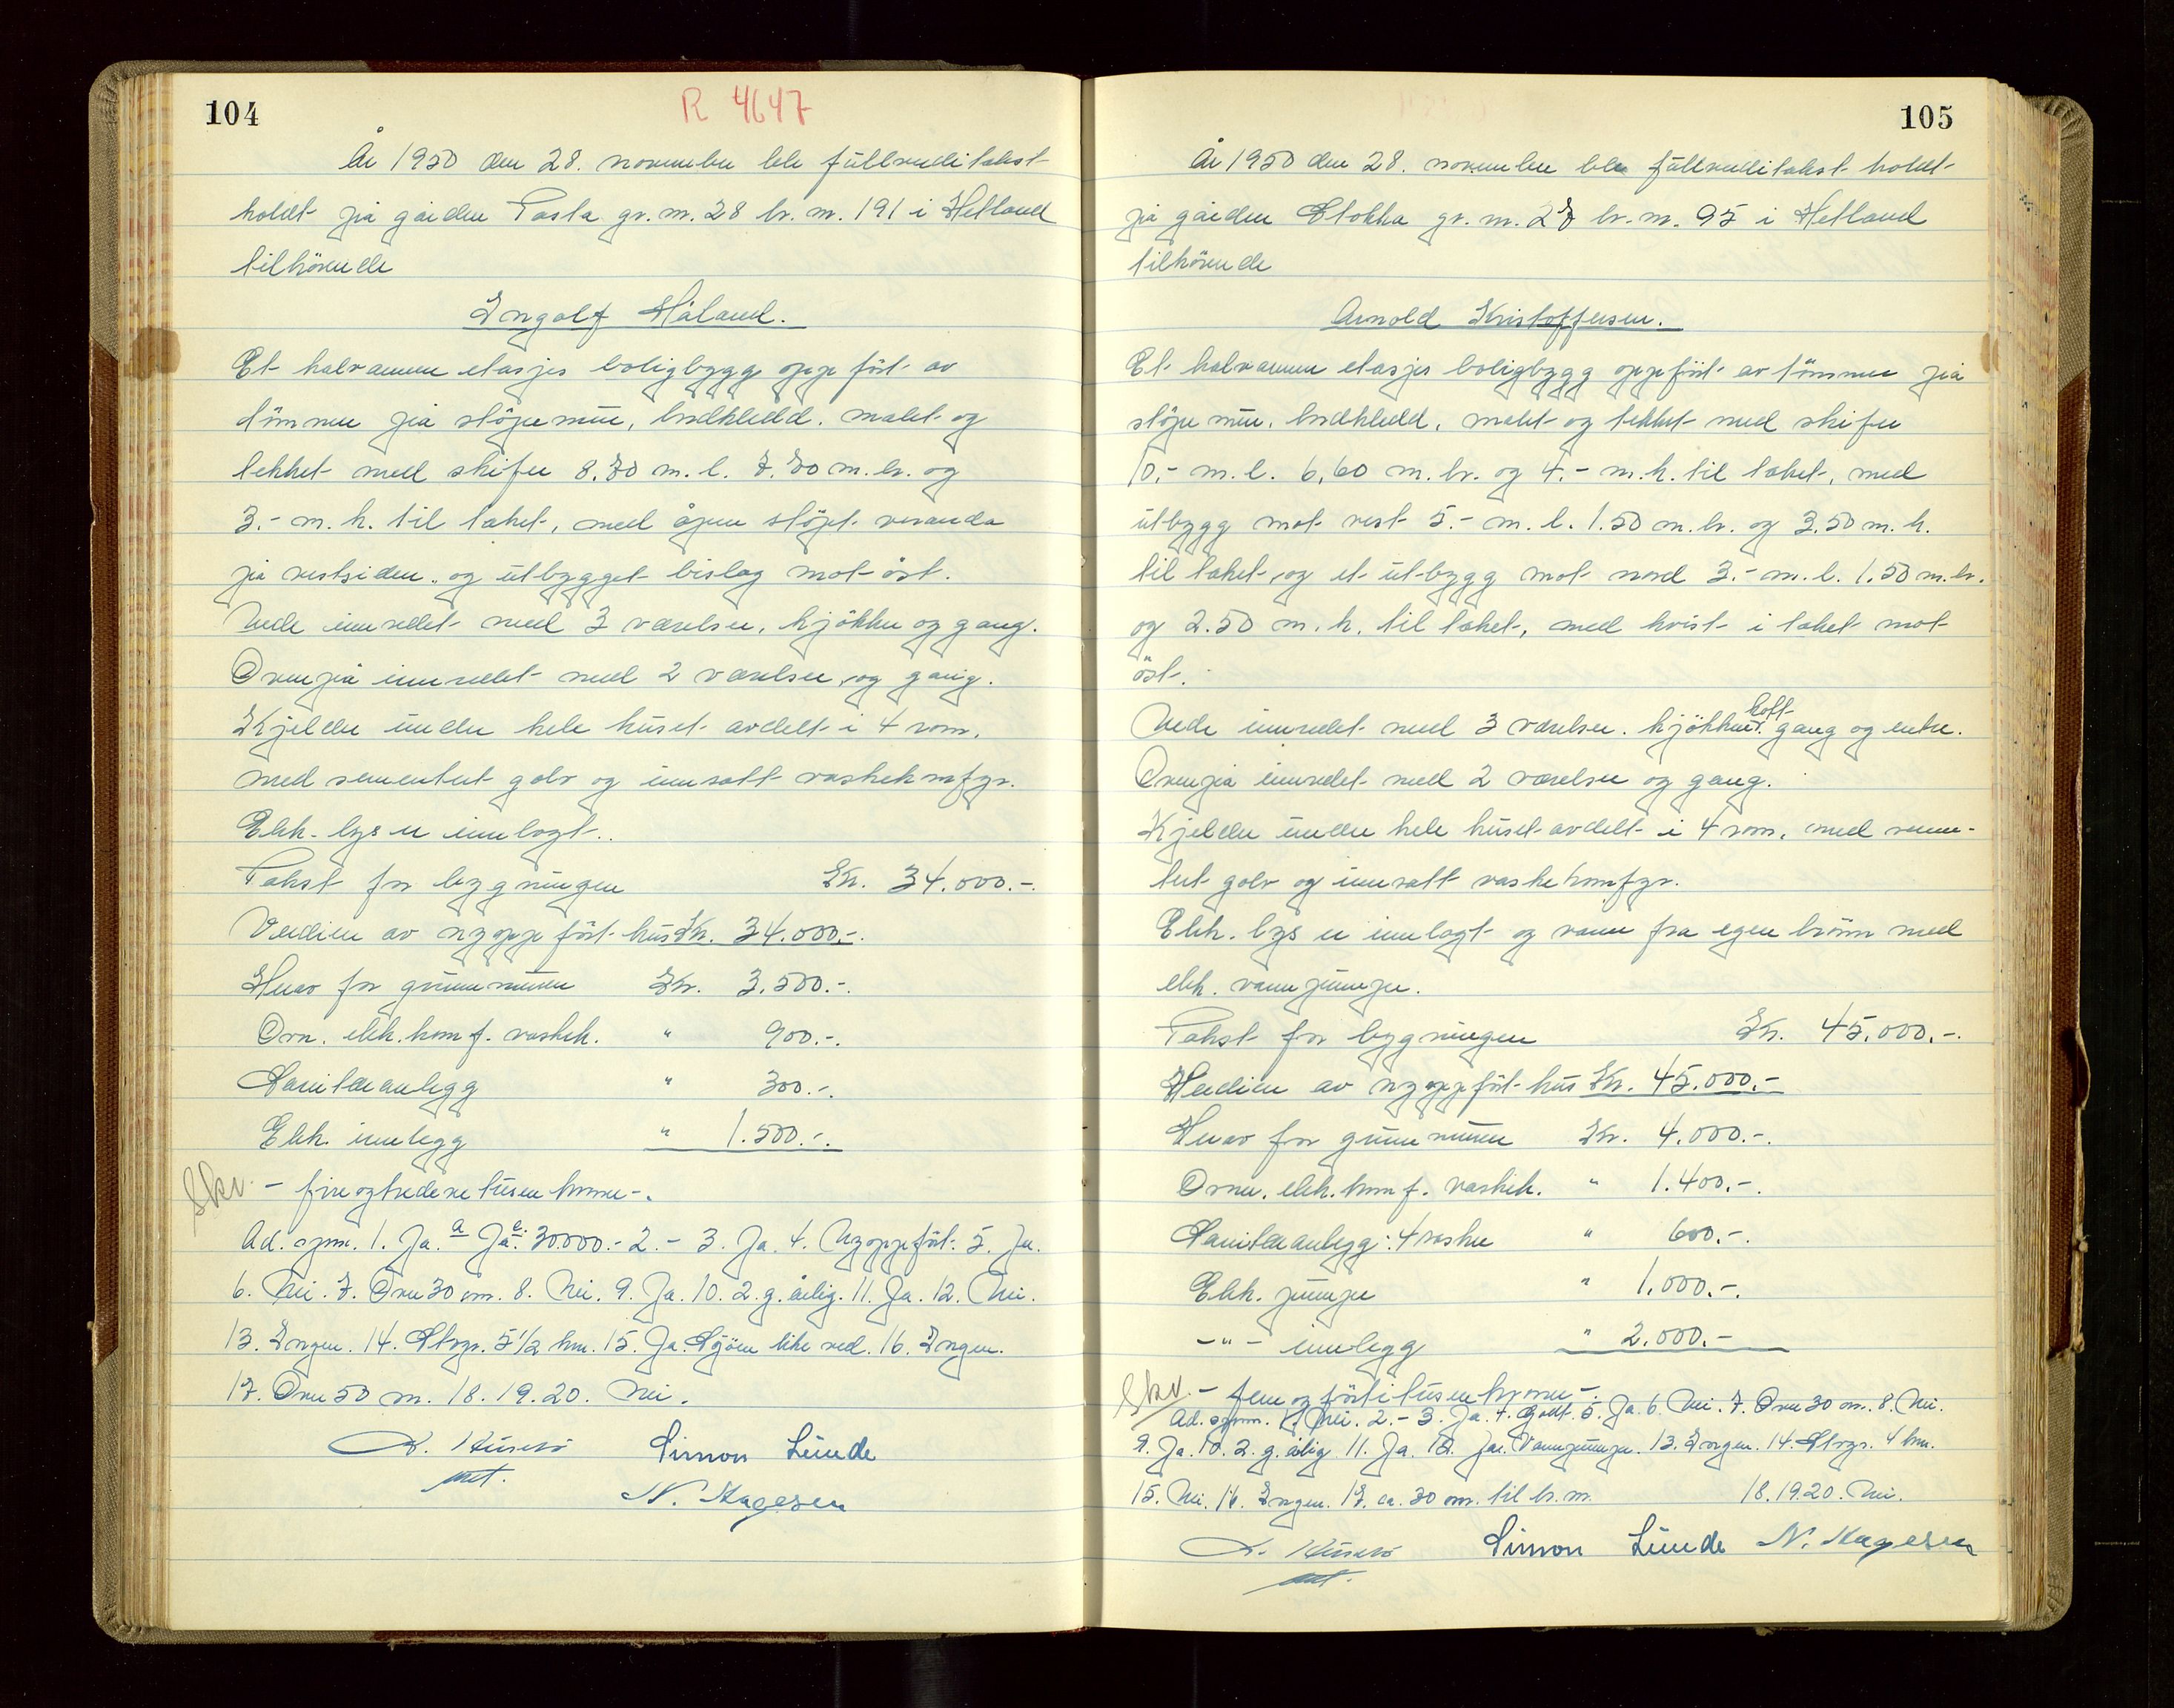 104
R 4647
År 1950 den 28. november ble fullverditakst
holdt på gården Tasta gr. nr. 28 br. nr. 191 i Hetland
tilhörende
Ingolf Håland.
Et halvannen etasjes boligbygg oppfört av
tömmer på stöpemur, bredkledd. malet og
tekket med skifer 8.70 m. l. 7.70 m. br. og
3.- m. h. til taket, med åpen stöpt veranda
på vestsiden. og utbygget bislag mot öst.
Nede innredet med 3 værelser, kjökken og gang.
Ovenpå innredet med 2 værelser, og gang.
Kjelder under hele huset avdelt i 4 rom.
med sementert golv og innsatt vaskekomfyr.
Elek. lys er innlagt.
Takst for bygningen Kr. 34.000.-.
Verdien av nyoppfört hus Kr. 34.000.-.
Herav for grunnmuren Kr. 3.500.-.
Ovn. elek. komf. vaskek. " 900.-.
Sanitæranlegg " 300.-.
Elek. innlegg " 1.500.-.
Skv. - fireogtredevetusen kroner -.
Ad. spm. 1. Ja. a Ja. c. 30.000.- 2. - 3. Ja. 4. Nyoppfört. 5. Ja.
6. Nei. 7. Over 30 m. 8. Nei. 9. Ja. 10. 2. g. årlig. 11. Ja. 12. Nei.
13. Ingen. 14. Stvgr. 5 1/2 km. 15. Ja. Sjöen like ved. 16. Ingen.
17. Over 50 m. 18. 19. 20. Nei.
Simon Lunde
N. Hagesen
105
År 1950 den 28. november ble fullverditakst holdt
på gården Stokka gr. nr. 27 br. nr. 95 i Hetland
tilhörende
Arnold Kristoffersen.
Et halvannen etasjes boligbygg oppfört av tömmer på
stöpemur. bredkledd, malet og tekket med skifer
10.- m. l. 6,60 m. br. og 4.- m. h. til taket, med
utbygg mot vest 5.- m. l. 1.50 m. br. og 3.50 m. h.
til taket, og et utbygg mot nord 3.- m. l. 1.50 m. br.
og 2.50 m. h. til taket, med kvist i taket mot
öst.
Nede innredet med 3 værelser. kjökken. gang og entre.
Ovenpå innredet med 2 værelser og gang.
Kjelder under hele huset avdelt i 4 rom. med semen-
tert golv og innsatt vaskekomfyr.
Elek. lys er innlagt og vann fra egen brönn med
elek. vannpumpe.
Takst for bygningen Kr. 45.000.-.
Verdien av nyoppfört hus Kr. 45.000.-
Herav for grunnmuren Kr. 4.000.-.
Ovner. elek. komf. vaskek. " 1.400.-.
Sanitæranlegg: 4 vasker " 600.-.
Elek. pumpe " 1.000.-.
-"- innlegg " 2.000.-
Skv. - fem og förti tusen kroner -.
Ad. spm. 1. Nei. 2. - 3. Ja. 4. Godt. 5. Ja. 6. Nei. 7. Over 30 m. 8. Nei.
9. Ja. 10. 2. g. årlig. 11. Ja. 12. Ja. Vannpumpe. 13. Ingen. 14. Stvgr. 4 km.
15. Nei. 16. Ingen. 17. ca. 30 m. til br. nr. 18. 19. 20. Nei.
Simon Lunde N. Hagesen